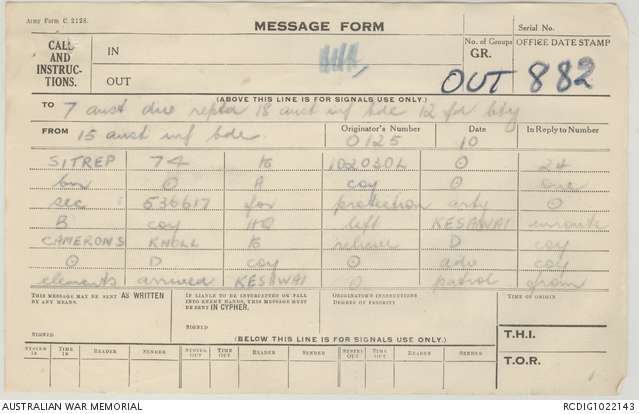 Army Form C. 2128.
MESSAGE FORM
Serial No.
CALL AND INSTRUCTIONS.
IN
OUT
No. of Groups GR.
OFFICE DATE STAMP
OUT 882
(ABOVE THIS LINE IS FOR SIGNALS USE ONLY.)
TO 7 aust div reptd 18 aust inf bde 12 fd bty
FROM 15 aust inf bde
Originator's Number 0125
Date 10
In Reply to Number
SITREP 74 to 102030L ⊙ 24
bn ⊙ A coy ⊙ one
sec 536617 for protection arty ⊙
B coy HQ left KESAWAI enroute
CAMERONS KNOLL to relieve D coy
⊙ D coy ⊙ adv coy
elements arrived KESAWAI ⊙ patrol from
THIS MESSAGE MAY BE SENT AS WRITTEN BY ANY MEANS.
SIGNED
IF LIABLE TO BE INTERCEPTED OR FALL INTO ENEMY HANDS, THIS MESSAGE MUST BE SENT IN CYPHER.
SIGNED
ORIGINATOR'S INSTRUCTIONS DEGREE OF PRIORITY
TIME OF ORIGIN
T.H.I.
T.O.R.
(BELOW THIS LINE IS FOR SIGNALS USE ONLY.)
SYSTEM IN TIME IN READER SENDER SYSTEM OUT TIME OUT READER SENDER SYSTEM OUT TIME OUT READER SENDER
AUSTRALIAN WAR MEMORIAL
RCDIG1022143